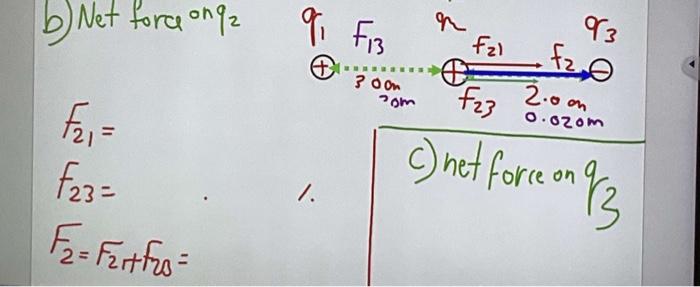 b) Net force on q2
q1 F13 q2 F21 F2 q3
+ + −
3.00m F23 2.0 cm
0.020m
F21 =
F23 =
F2 = F21 + F23 =
c) net force on q3